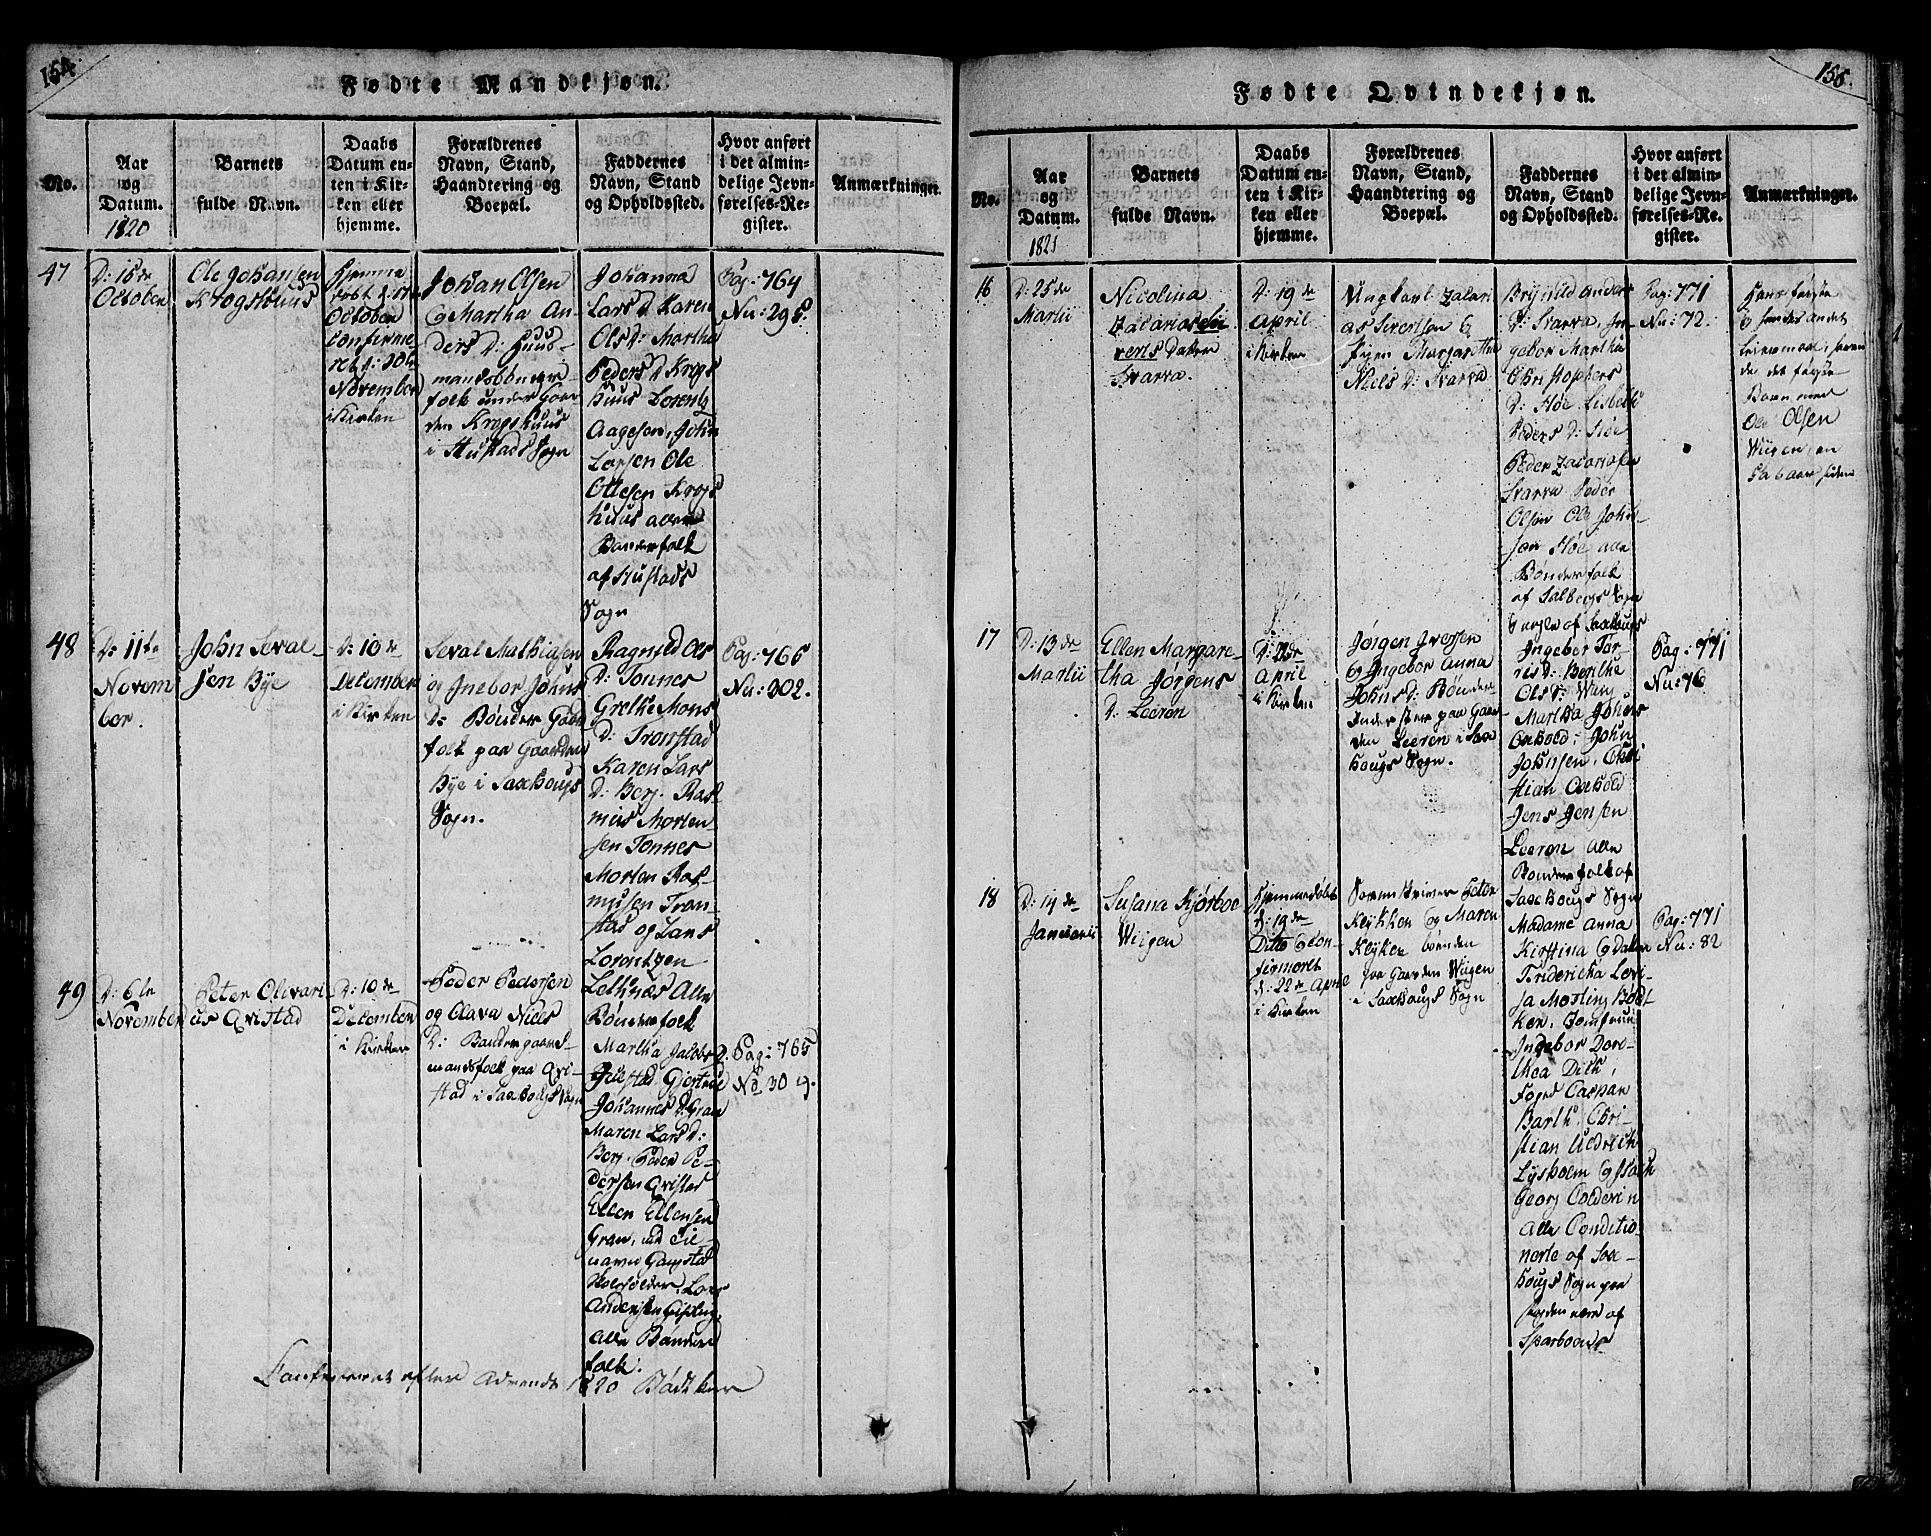 154.
Fødte Mandkjøn.
No.
Aar
og
Datum.
1820
Barnets
fulde Navn.
Daabs
Datum en-
ten i Kir-
ken eller
hjemme.
Forældrenes
Navn, Stand,
Haandtering og
Boepæl.
Faddernes
Navn, Stand
og Opholdssted.
Hvor anført
i det almin-
delige Jevn-
førelses-Re-
gister.
Anmærkninger.
47
D: 15de
October
Ole Johansen
Krogshuus
Hjemme
døbt d: 17de
October
confirme-
ret d: 30te
November
i Kirken
Johan Olsen
& Martha An-
ders D: Huus-
mands bønder
folk under Gaar
den Krogshuus
i Hustads Sogn
Johanna
Lars D. Karen
Ols D: Martha
Peders D. Krogs
huus Lorentz
Aagesen, John
Larsen Ole
Ottesen Krogs
huus alle
Bønderfolk
af Hustads
Sogn
Pag: 764
Nu: 295.
48
D: 11te
Novem
ber.
John Seval-
sen Bye
D: 10de
December
i Kirken
Seval Mathiasen
og Inebor Johns
D: Bønder Gaard
folk paa Gaarden
Bye i Saxhougs
Sogn.
Ragnild Ols
D: Tonnes
Grethe Mons
D: Tronstad
Karen Lars
D: Berg. Ras-
mus Morten-
sen Tonnes
Morten Ras-
musen Tron-
stad og Lars
Lorentzen
Lethnæs Alle
Bønderfolk
Pag: 765
Nu: 302.
49
D: 6te
November
Peter Olivari
us Qvistad
D: 10de
December
i Kirken
Peder Pedersen
og Olava Niels
D: Bønder gaard-
mandsfolk paa Qvi-
stad i Saxhougs Sogn
Martha Jacobs D.
Qvistad Gjertrud
Johannes D. Gran
Maren Lars D:
Berg. Peder Pe-
dersen Qvistad
Ellen Ellensen
Gran,
Gaustad
Skoleholder, Lars
Andersen
Alle Bønder
folk.
Pag: 765
No 309.
efter Advendt 1820 Bødtker
155.
Fødte Qvindekjøn.
No.
Aar
og
Datum.
1821
Barnets
fulde Navn.
Daabs
Datum en-
ten i Kir-
ken eller
hjemme.
Forældrenes
Navn, Stand,
Haandtering og
Boepæl.
Faddernes
Navn, Stand
og Opholdssted.
Hvor anført
i det almin-
delige Jevn-
førelses-Re-
gister.
Anmærkninger.
16
D: 25de
Martii
Nicolina
Zacarias Si-
verts Datter
Svarva.
D: 19de
April
i Kirken
Ungkarl Zacari
as Sivertsen &
Pigen Margaretha
Niels D: Svarva
Brynild Anders
D: Svarva, In-
gebor Martha
Christophers
D: Høe Lisbeth
Peders D: Høe
Peder Zacariasen
Svarva Peder
Olsen Ole John-
sen Høe alle
Bønderfolk
af Salbergs Sogn
& af Saxhougs
Pag: 771
Nu: 72.
Hans første
& hendes andet
Leiermaal, havde
det første
Barn med
Ole Olsen
Wiigen, en
6 aar siden
17
D: 13de
Martii
Ellen Margare-
tha Jørgens
D: Leeren
D: 22de
April
i Kirken
Jørgen Iversen
& Ingebor Anna
Johns D: Bønder
paa Gaar-
den Leeren i Sax
hougs Sogn.
Ingebor Tor-
ris D: Berthe
Ols D: Wang
Martha Johns
Oxhold; John
Johnsen, Chri
stian Oxhold
Jens Jensen
Leeren Alle
Bønderfolk af
Saxhougs Sogn
Pag: 771
Nu: 76
18
D: 14de
Januarii
Susana Kjørboe
Wiigen
Hjemmedøbt
d: 19de
Ditto & con-
firmeret
d: 22de April
i Kirken
Sorenskriver Peter
Klykken & Maren
Klykken boende
paa Gaarden Wiigen
i Saxhougs Sogn
Madame Anna
Kirstina & Datter
Fridericka Lovi-
sa Mosling Bødt-
ker. Jomfrue
Ingebor Doro-
thea Dith,
Foged Caspar
Barth. Chri-
stian Uldrich
Lysholm &
Georg Colderin
Alle Conditio-
nerte af Sax-
hougs Sogn paa
Fogden nær af
Sparboens
Pag: 771
Nu: 82